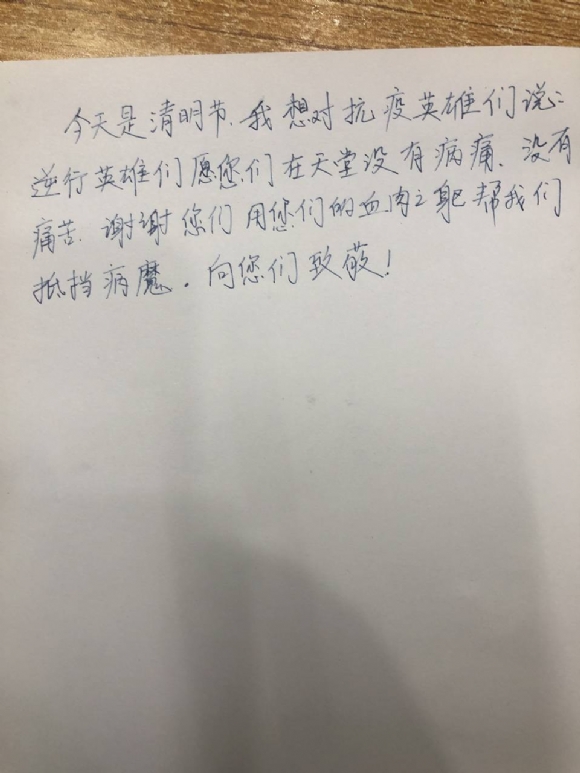 今天是清明节.我想对抗疫英雄们说:
逆行英雄们愿您们在天堂没有病痛、没有
痛苦.谢谢您们用您们的血肉之躯帮我们
抵挡病魔.向您们致敬!